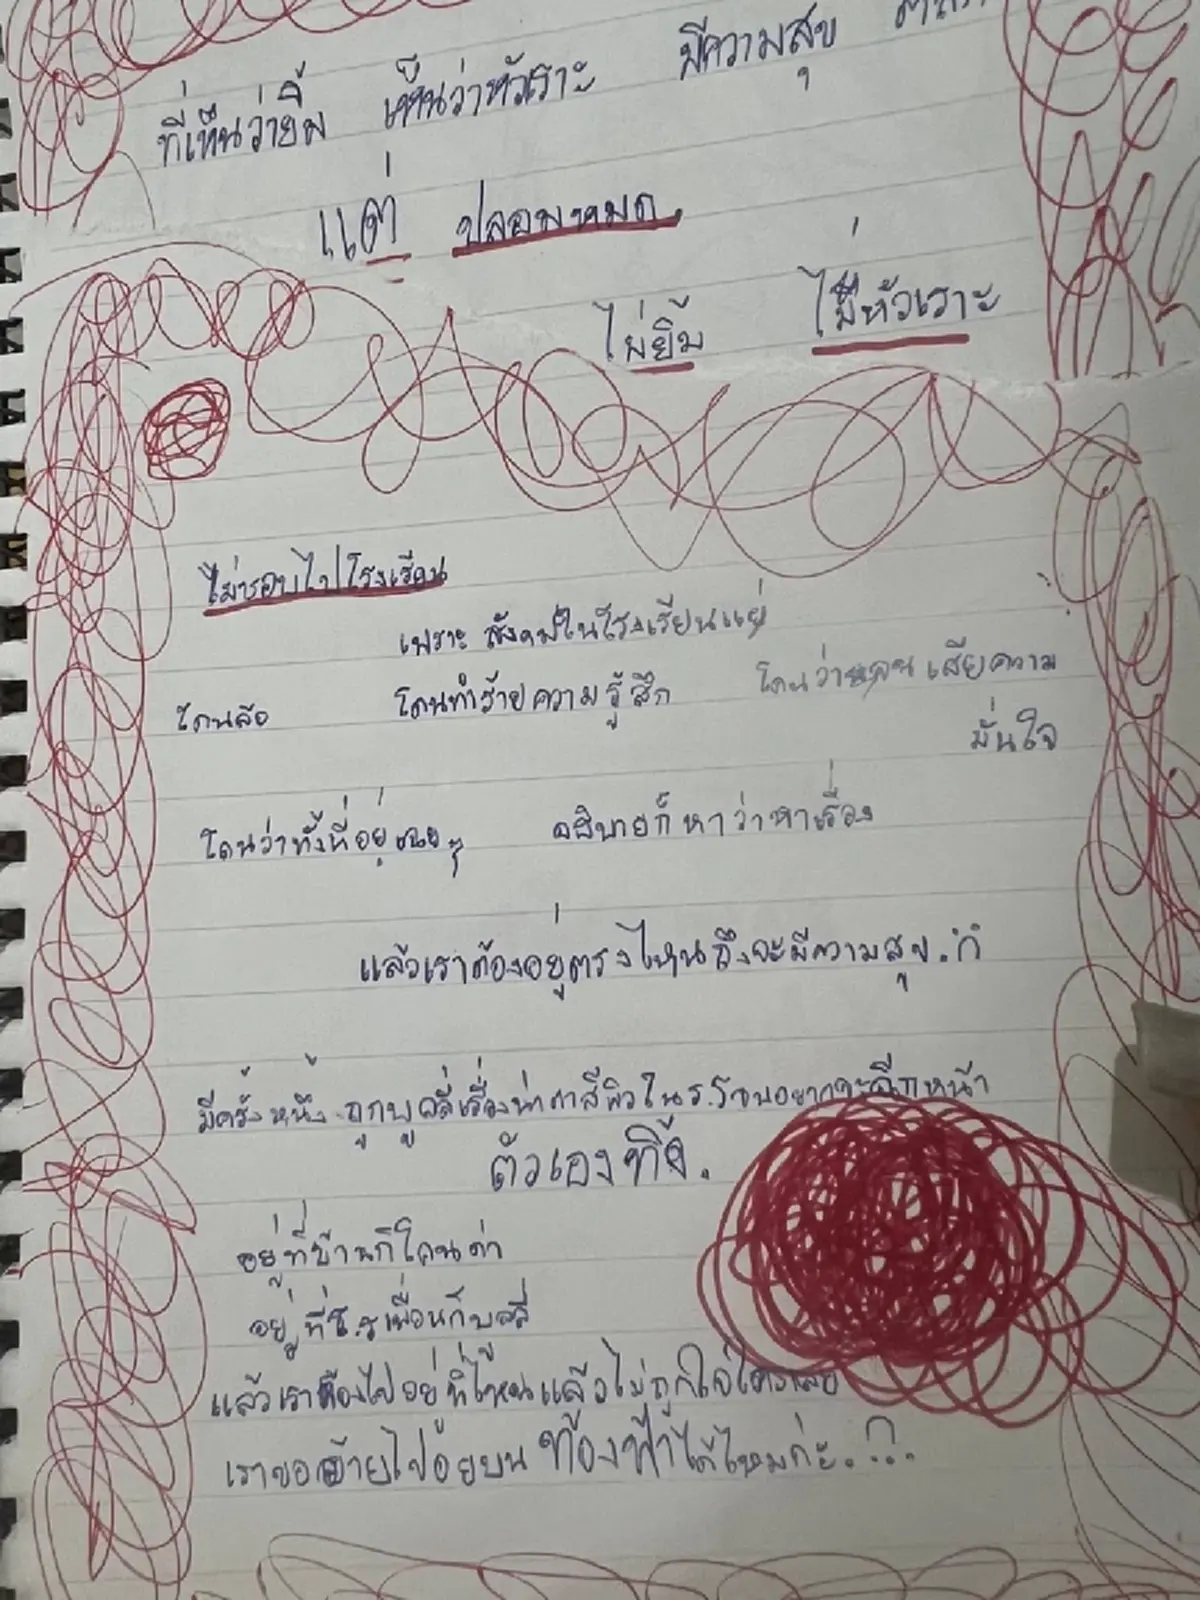 ที่เห็นว่ายิ้ม เห็นว่าหัวเราะ มีความสุข
แต่ ปลอมหมด.
ไม่ยิ้ม ไม่หัวเราะ
ไม่ชอบไปโรงเรียน
เพราะ สังคมในโรงเรียนแย่
โดนล้อ โดนทำร้ายความรู้สึก โดนว่าหลุน เสียความ
มั่นใจ
โดนว่าทั้งที่อยู่เฉยๆ อธิบายก็หาว่าหาเรื่อง
แล้วเราต้องอยู่ตรงไหนถึงจะมีความสุข.
มีครั้งหนึ่ง ถูกบูลลี่เรื่องหน้าตาสีผิวใน ร.ร จนอยากจะฉีกหน้า
ตัวเองทิ้ง.
อยู่ที่บ้านก็โดนด่า
อยู่ที่ ร.ร เพื่อนก็บูลลี่
แล้วเราต้องไปอยู่ที่ไหนแล้วไม่ถูกใจใครเลย
เราขอย้ายไปอยู่บน ท้องฟ้าได้ไหมค่ะ..